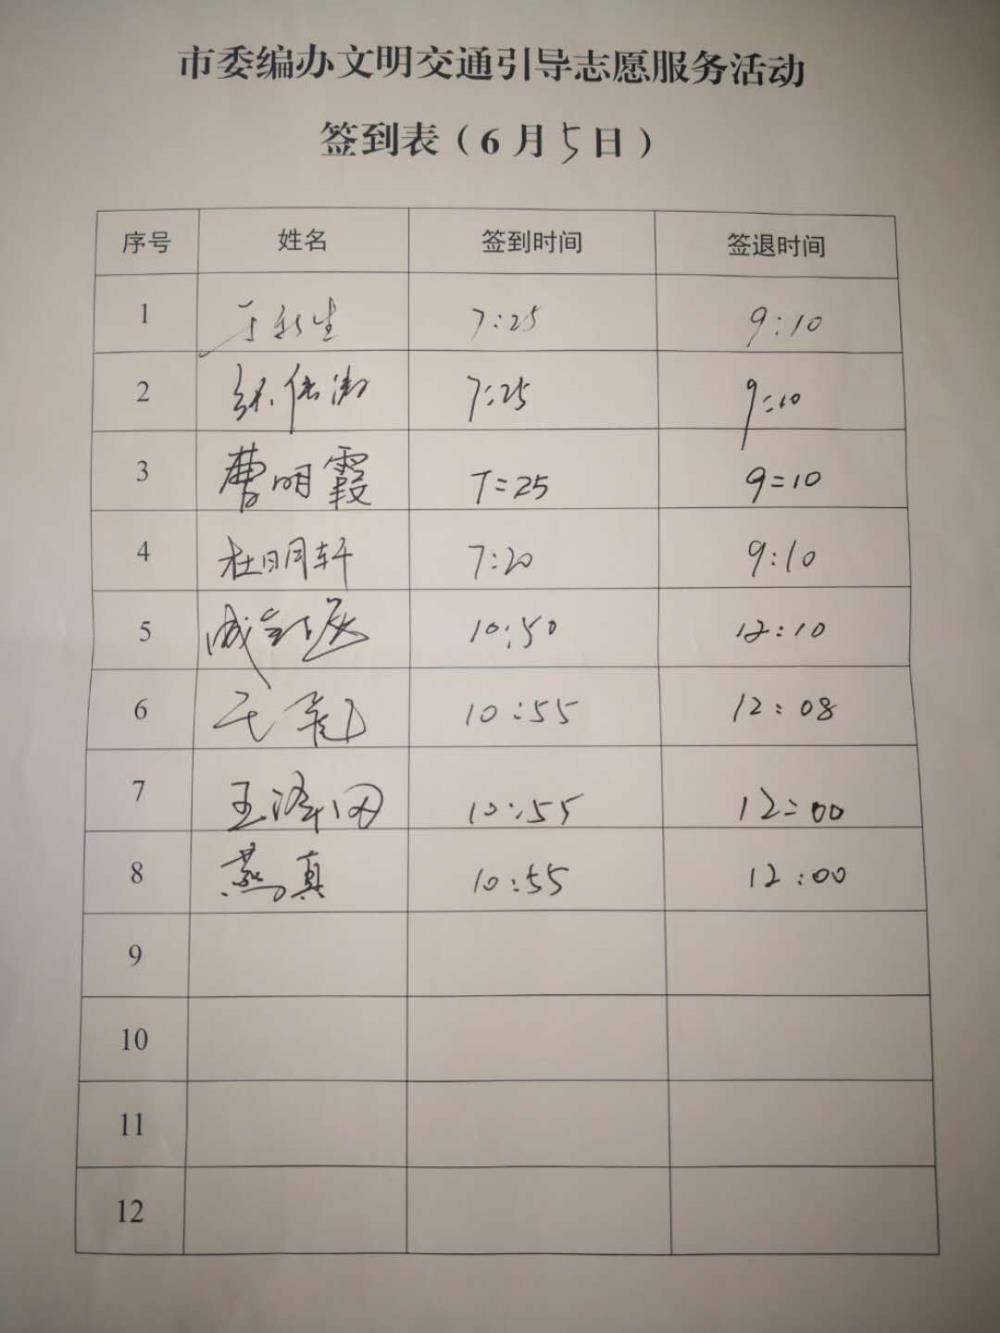 市委编办文明交通引导志愿服务活动
签到表（6月5日）
序号 姓名 签到时间 签退时间
1 于新生 7:25 9:10
2 7:25 9:10
3 曹明霞 7:25 9:10
4 杜明轩 7:20 9:10
5 10:50 12:10
6 10:55 12:08
7 王泽田 10:55 12:00
8 燕真 10:55 12:00
9
10
11
12